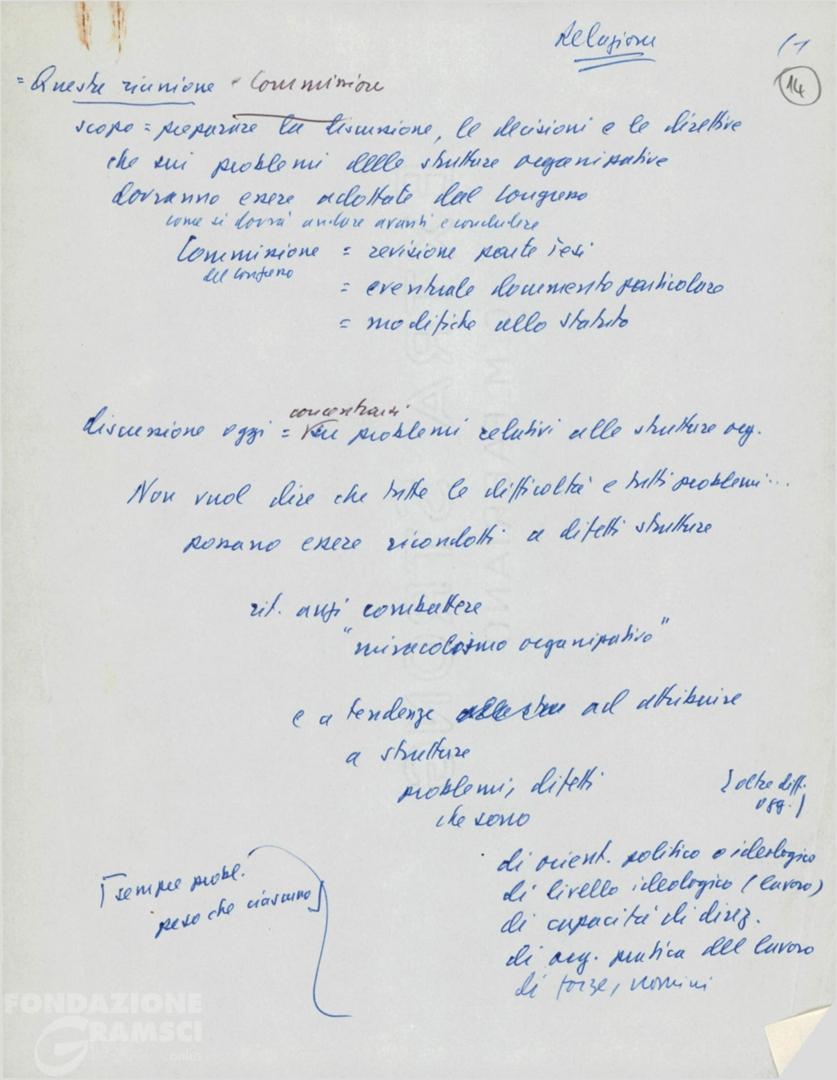 Relazione
(1
14
= Questa riunione = Commissione
scopo = preparare la discussione, le decisioni e le direttive
che sui problemi delle strutture organizzative
dovranno essere adottate dal Congresso
come si dovrà andare avanti e concludere
Commissione = revisione parte tesi
del congresso
= eventuale documento particolare
= modifiche allo statuto
concentrarsi
discussione oggi = su problemi relativi alle strutture org.
Non vuol dire che tutte le difficoltà e tutti problemi...
possano essere ricondotti a difetti strutture
rit. anzi combattere
"miracolismo organizzativo"
e a tendenze ad attribuire
a strutture
problemi, difetti
che sono
(oltre diff.
ogg.)
di orient. politico o ideologico
di livello ideologico (lavoro)
di capacità di direz.
di org. pratica del lavoro
di forze, uomini
[sempre probl.
peso che ciascuno]
FONDAZIONE
GRAMSCI
onlus